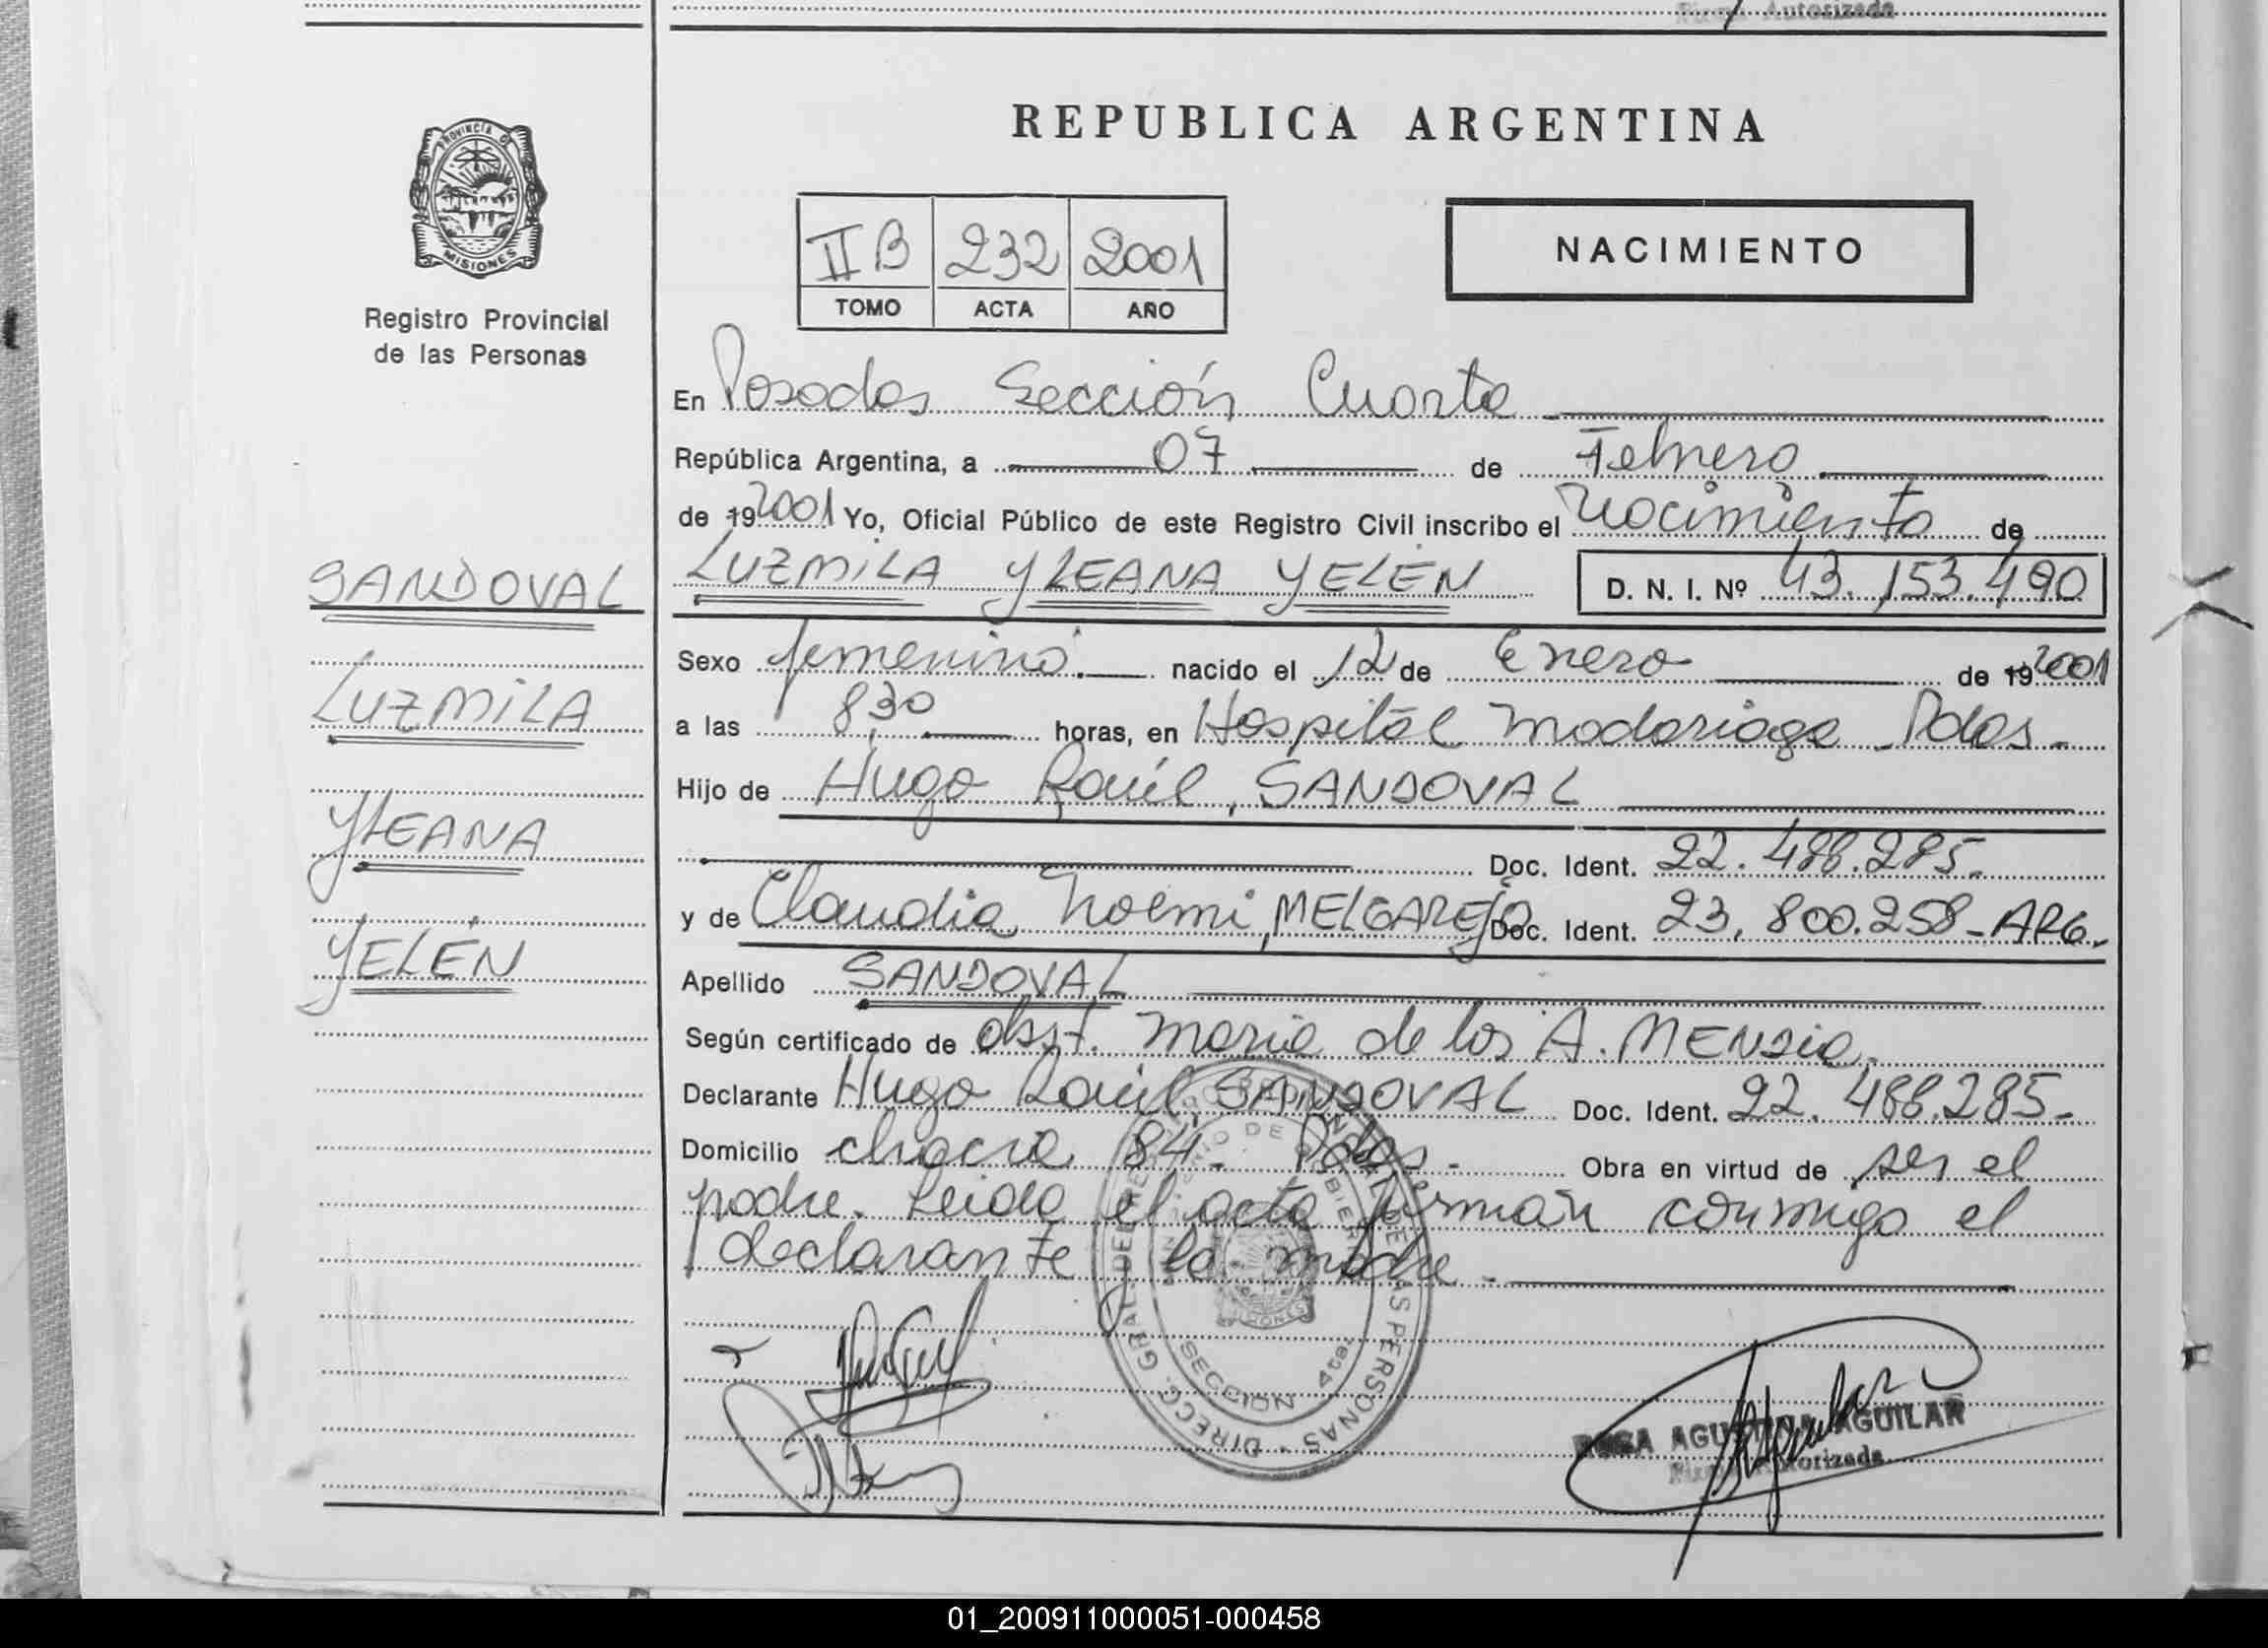 Firma Autorizada
PROVINCIA DE
MISIONES
Registro Provincial
de las Personas
SANDOVAL
LUZMILA
YLEANA
YELÉN
REPUBLICA ARGENTINA
II B 232 2001
TOMO ACTA AÑO
NACIMIENTO
En Posadas Sección Cuarta
República Argentina, a 07 de Febrero
de 19 2001 Yo, Oficial Público de este Registro Civil inscribo el Nacimiento de
LUZMILA YLEANA YELÉN D. N. I. Nº 43.153.490
Sexo femenino. nacido el 12 de Enero de 19 2001
a las 8,30 horas, en Hospital Madariaga - Pdas.-
Hijo de Hugo Raúl, SANDOVAL
Doc. Ident. 22.488.285.-
y de Claudia Noemi, MELGAREJO Doc. Ident. 23.800.258-ARG.-
Apellido SANDOVAL
Según certificado de obst. Maria de los A. MENDia.
Declarante Hugo Raúl, SANDOVAL Doc. Ident. 22.488.285.-
Domicilio chacra 84 - Pdas.- Obra en virtud de ser el
padre. Leida el acta firman conmigo el
declarante y la madre.-
DIRECC. GRAL. DEL REG. PROVINCIAL DE LAS PERSONAS
MINISTERIO DE GOBIERNO
MISIONES
SECCION 4ta.
ROSA AGUSTINA AGUILAR
Firma Autorizada
01_200911000051-000458